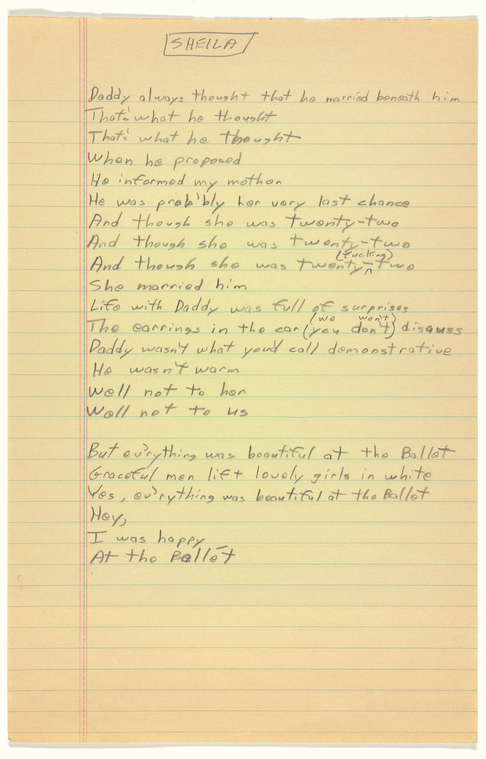 SHEILA
Daddy always thought that he married beneath him
That's what he thought
That's what he thought
When he proposed
He informed my mother
He was prob'bly her very last chance
And though she was twenty-two
And though she was twenty-two
(fucking)
And though she was twenty-^two
She married him
Life with Daddy was full of surprises
(we won't)
The earrings in the car (you don't) discuss
Daddy wasn't what you'd call demonstrative
He wasn't warm
Well not to her
Well not to us
But ev'rything was beautiful at the Ballet
Graceful men lift lovely girls in white
Yes, ev'rything was beautiful at the Ballet
Hey,
I was happy
At the Ballet